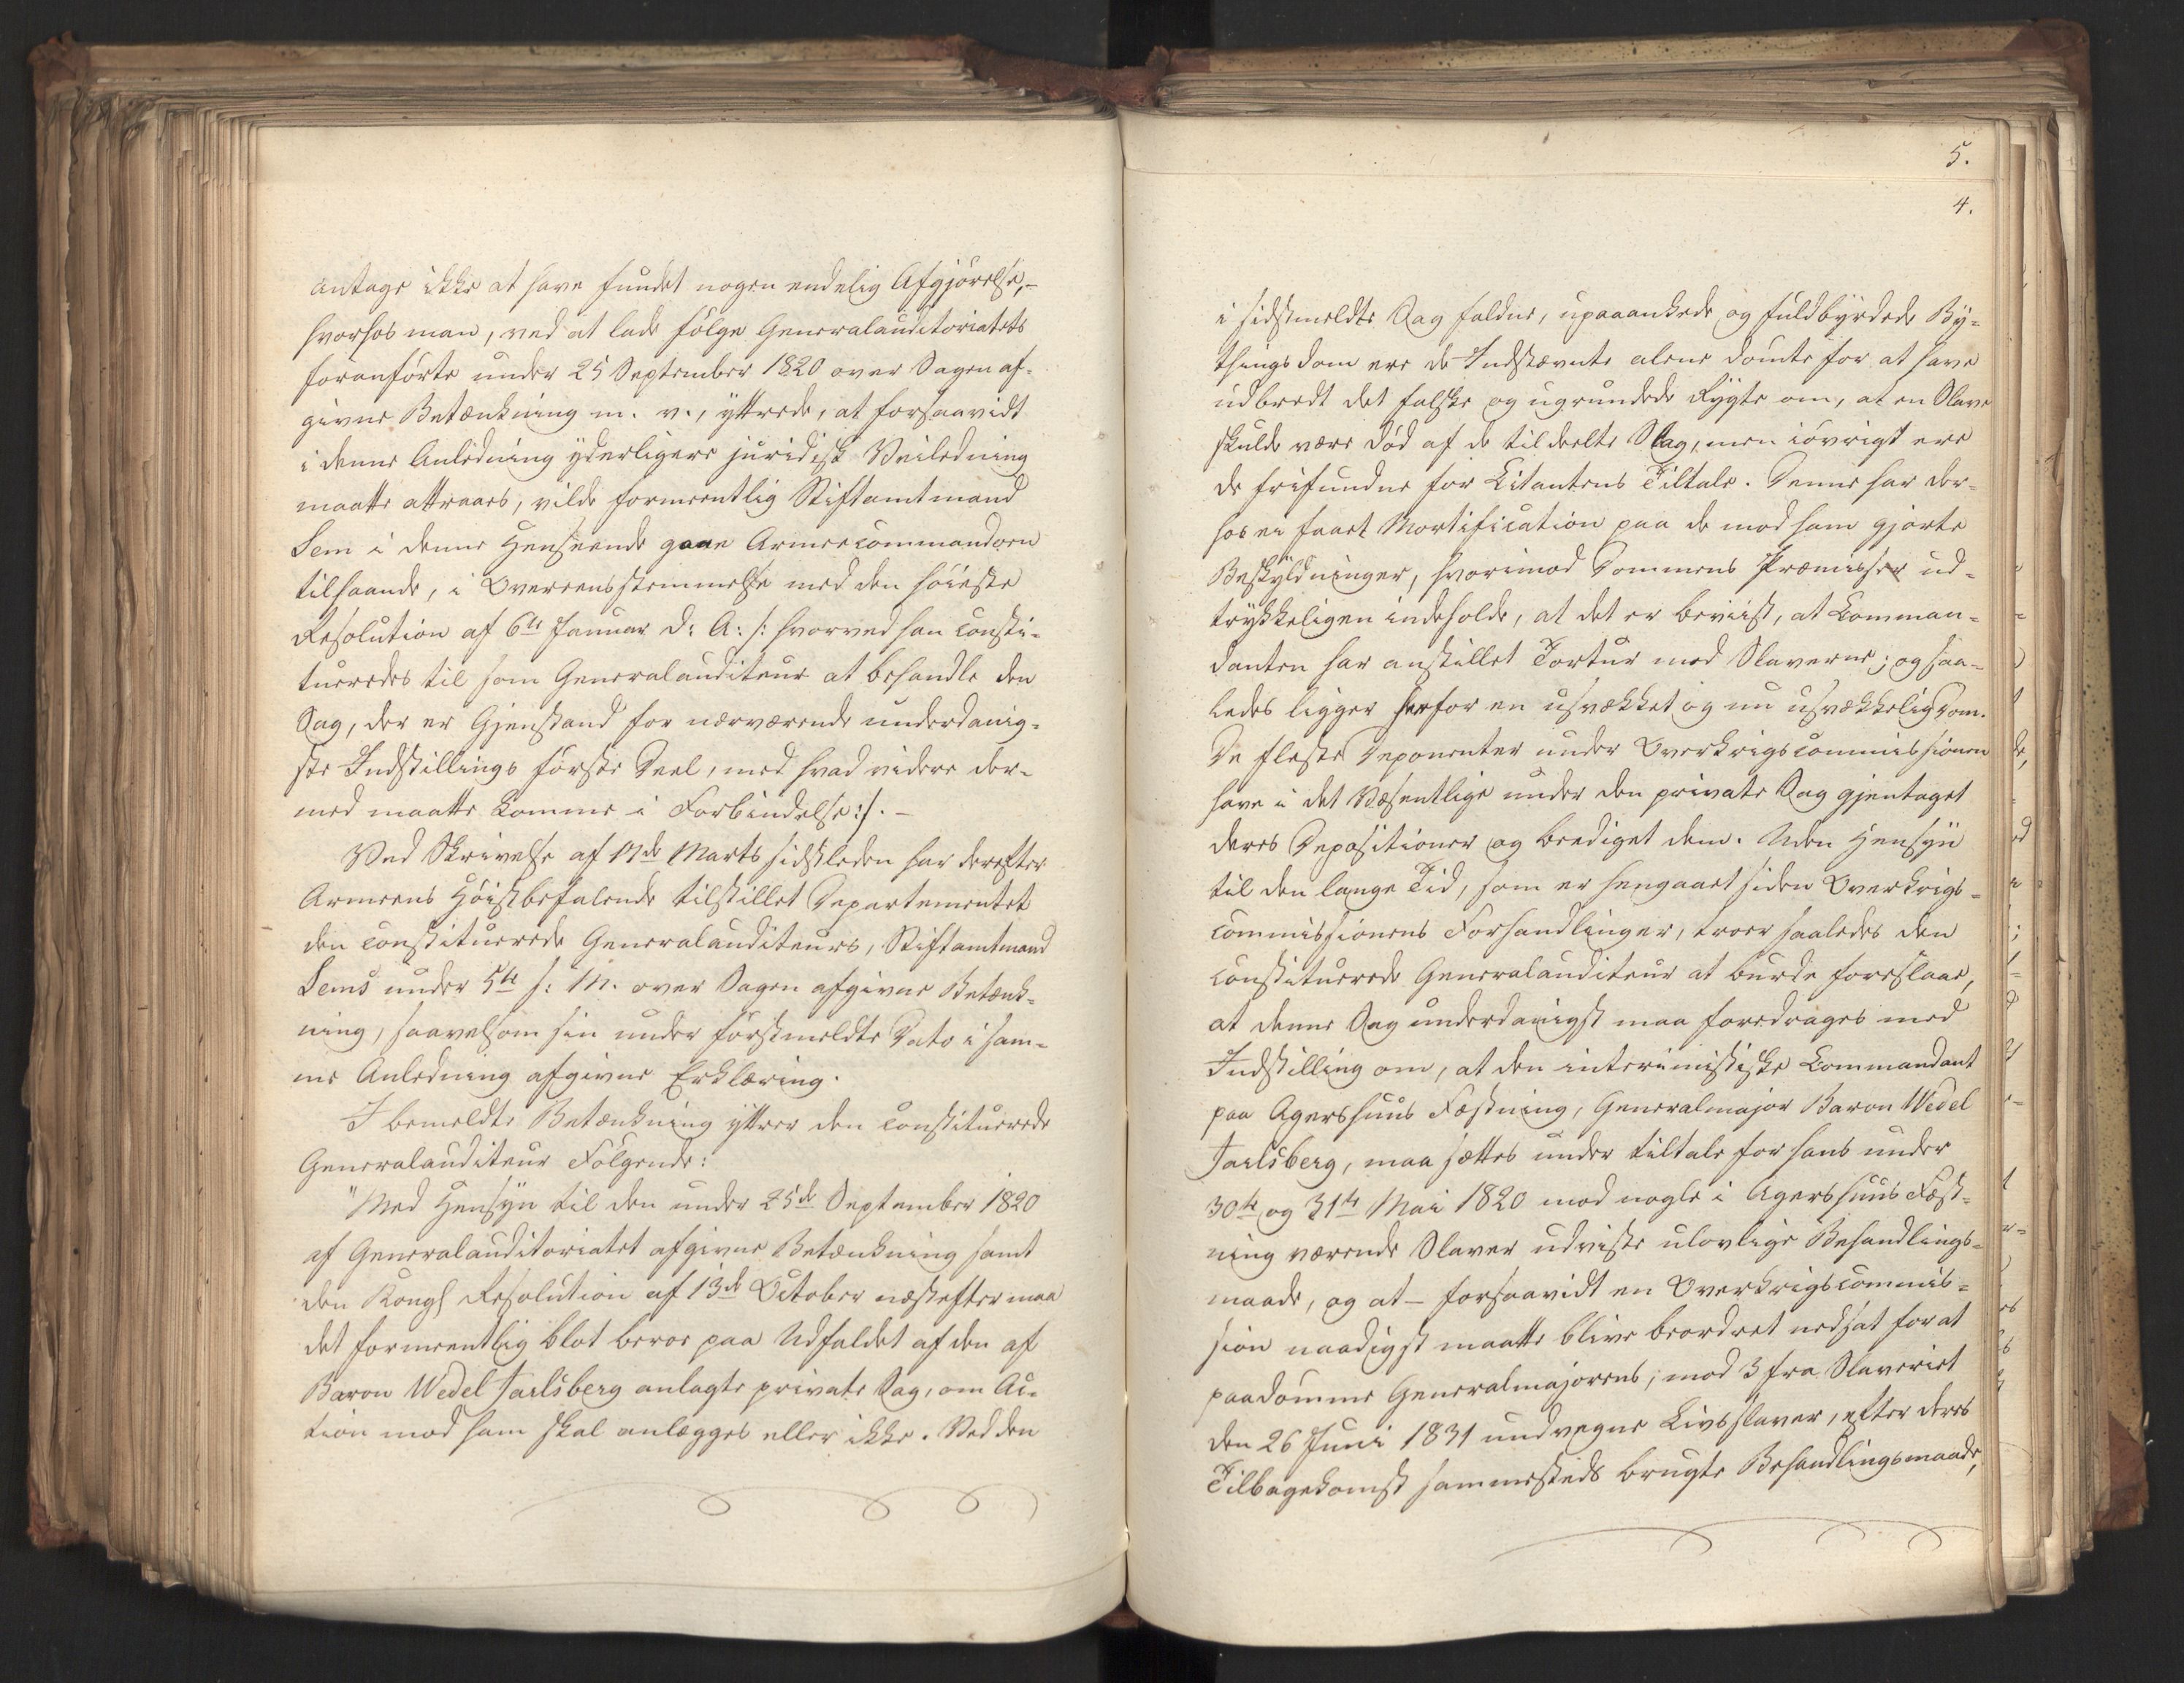 antage ikke at have fundet nogen endelig Afgjörelse,-
hvorhos man, ved at lade fölge Generalauditoriatets
foranförte under 25 September 1820 over Sagen af-
givne Betænkning m. v., yttrede, at forsaavidt
i denne Anledning yderligere juridisk Veiledning
maatte attraaes, vilde formeentlig Stiftamtmand
Sem i denne Henseende gaae Armeecommandoen
tilhaande, i Overeensstemmelse med den höieste
Resolution af 6te Januar d: A: /: hvorved han consti-
tueredes til som Generalauditeur at behandle den
Sag, der er Gjenstand for nærværende underdanig-
ste Indstillings förste Deel, med hvad videre der-
med maatte komme i Forbindelse:/. -
Ved Skrivelse af 17de Marts sidstleden har derefter
Armeens Höistbefalende tilstillet Departementet
den constituerede Generalauditeurs, Stiftamtmand
Sems under 5te s: M. over Sagen afgivne Betænk-
ning, saavelsom sin under förstmeldte Dato i sam-
me Anledning afgivne Erklæring.
I bemeldte Betænkning yttrer den constituerede
Generalauditeur Fölgende:
"Med Hensyn til den under 25de September 1820
af Generalauditoriatet afgivne Betænkning samt
den Kongl Resolution af 13de October næstefter maa
det formeentlig blot beroe paa Udfaldet af den af
Baron Wedel Jarlsberg anlagte private Sag, om Ac-
tion mod ham skal anlægges eller ikke. Ved den
5.
4.
i sidstmeldte Sag faldne, upaaankede og fuldbyrdede By-
thingsdom ere de Indstævnte alene dömte for at have
udbredt det falske og ugrundede Rygte om, at en Slave
skulde være död af de tildeelte Slag, men iövrigt ere
de frifundne for Citantens Tiltale. Denne har der-
hos ei faaet Mortification paa de mod ham gjorte
Beskyldninger, hvorimod Dommens Præmisser ud-
trykkeligen indeholde, at det er beviist, at Comman-
danten har anstillet Tortur mod Slaverne; og saa-
ledes ligger herfor en usvækket og nu usvækkelig Dom.
De fleste Deponenter under Overkrigscommissionen
have i det Væsentlige under den private Sag gjentaget
deres Depositioner og beediget dem. Uden Hensyn
til den lange Tid, som er hengaaet siden Overkrigs-
commissionens Forhandlinger, troer saaledes den
constituerede Generalauditeur at burde foreslaae,
at denne Sag underdanigst maa foredrages med
Indstilling om, at den interimistiske Commandant
paa Agershuus Fæstning, Generalmajor Baron Wedel
Jarlsberg, maa sættes under tiltale for hans under
30te og 31te Mai 1820 mod nogle i Agershuus Fæst-
ning værende Slaver udviste ulovlige Behandlings-
maade, og at - forsaavidt en Overkrigscommis-
sion naadigst maatte blive beordret nedsat for at
paadömme Generalmajorens, mod 3 fra Slaveriet
den 26 Juni 1831 undvegne Livsslaver, efter deres
Tilbagekomst sammesteds brugte Behandlingsmaade,